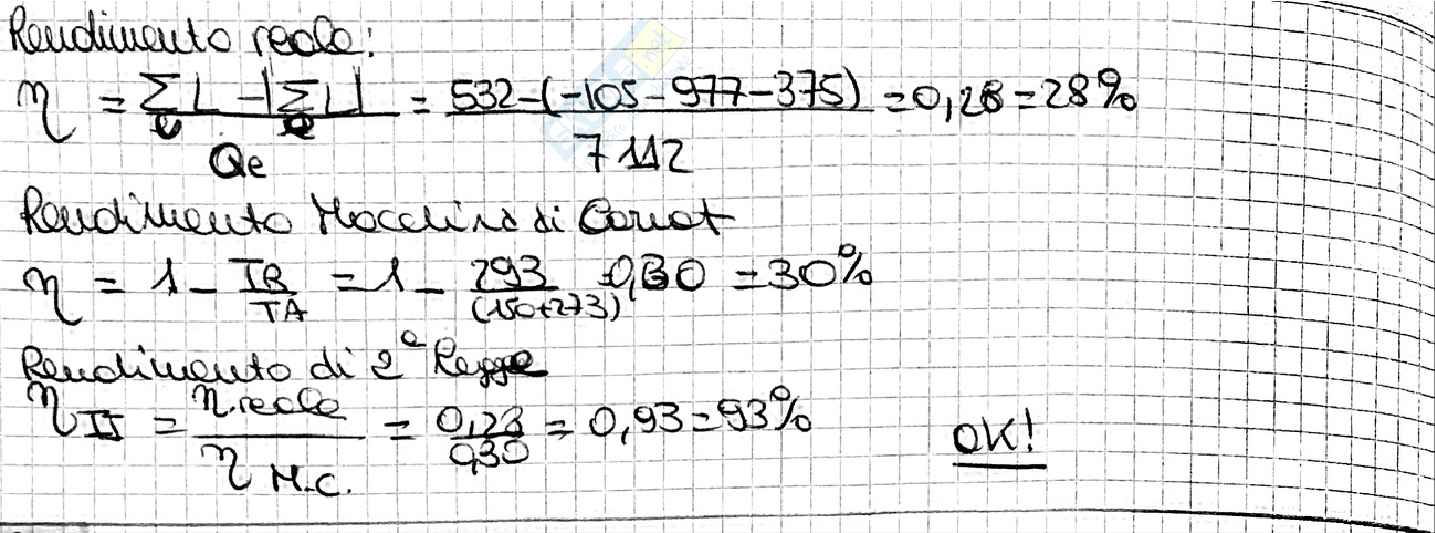 Rendimento reale:
η = ΣL - |ΣL| / Qe = 532-(-105-977-375) / 7112 = 0,28 = 28%
Rendimento Macchina di Carnot
η = 1 - TB / TA = 1 - 293 / (150+273) = 0,30 = 30%
Rendimento di 2ª Legge
η II = η reale / η M.C. = 0,28 / 0,30 = 0,93 = 93%
OK!